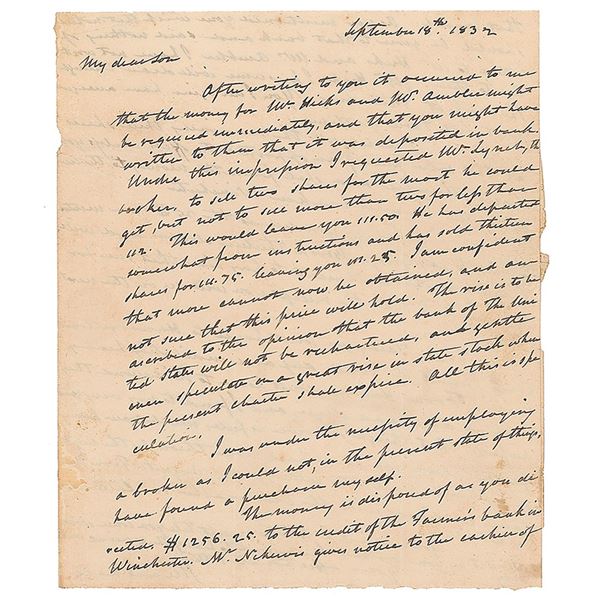 September 18th. 1832
My dear Son
After writing to you it occurred to me
that the money for Mr. Hicks and Mr. Ambler might
be required immediately, and that you might have
written to them that it was deposited in bank.
Under this impression I requested Mr. Lynch, the
broker, to sell two shares for the most he could
get, but not to sell more than two for less than
112. This would leave you 111.50. He has departed
somewhat from instructions and has sold thirteen
shares for 111.75. leaving you 111.25. I am confident
that more cannot now be obtained, and am
not sure that this price will hold. The rise is to be
ascribed to the opinion that the bank of the Uni
ted states will not be rechartered, and gentle
men speculate on a great rise in state stock when
the present charter shall expire. All this is spe
culation.
I was under the necessity of employing
a broker as I could not, in the present state of things,
have found a purchaser myself.
The money is disposed of as you di
rected. $1256.25. to the credit of the Farmers bank in
Winchester. Mr. gives notice to the cashier of